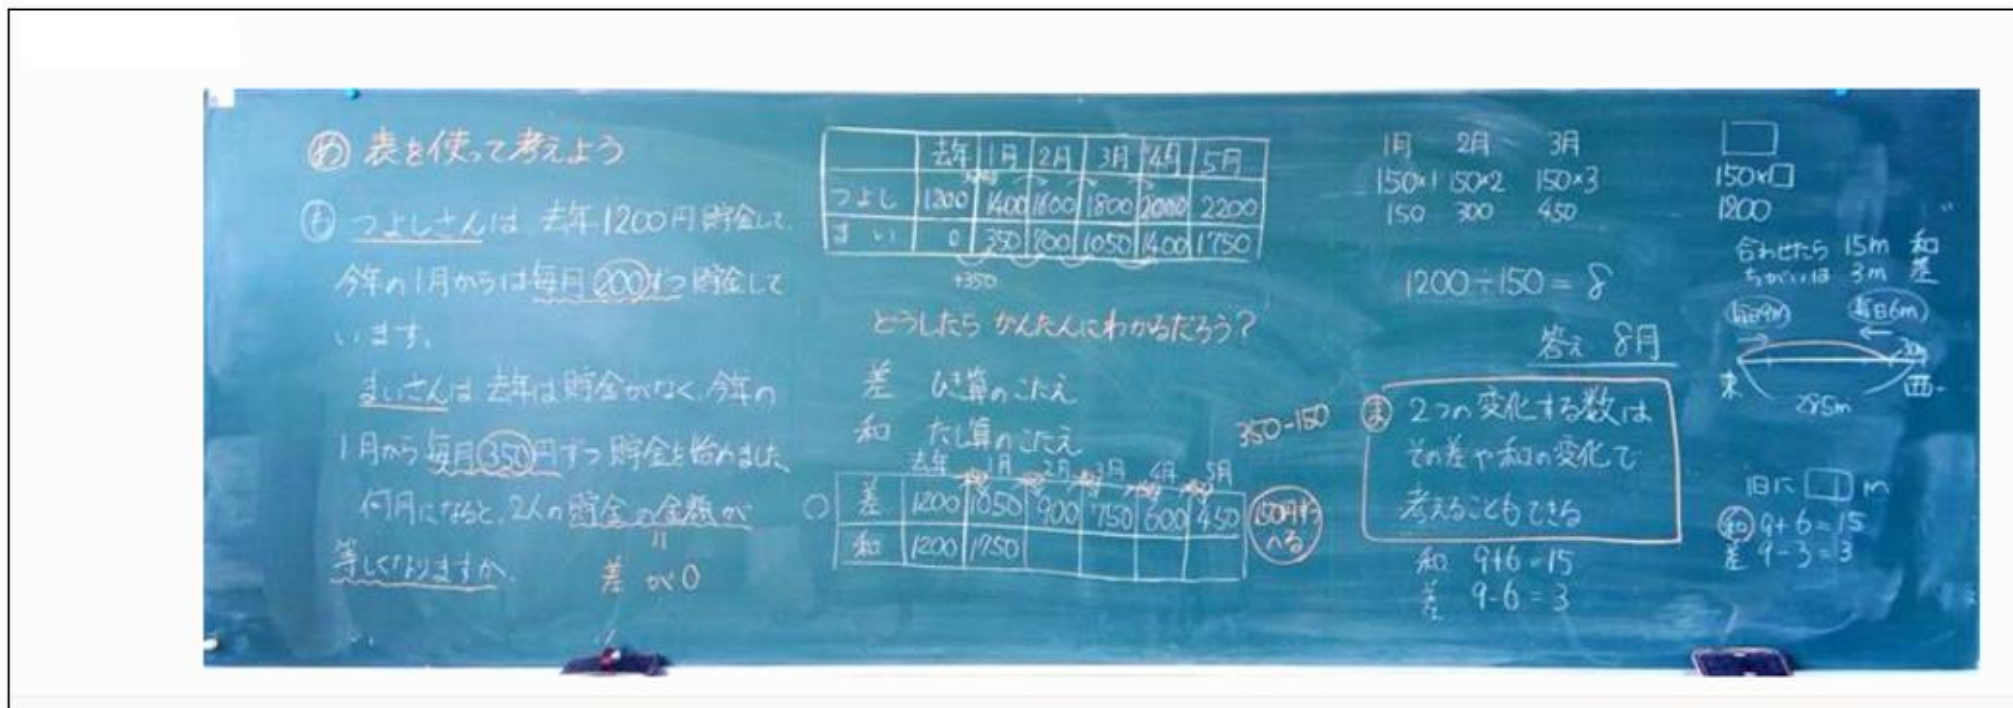 め 表を使って考えよう
も つよしさんは 去年1200円貯金して、
今年の1月からは毎月200ずつ貯金して
います。
まいさんは 去年は貯金がなく、今年の
1月から毎月350円ずつ貯金を始めました
何月になると、2人の貯金の金額が
等しくなりますか。
差が0
去年 1月 2月 3月 4月 5月
つよし 1200 1400 1600 1800 2000 2200
まい 0 350 700 1050 1400 1750
+350
どうしたら かんたんにわかるだろう?
差 ひき算のこたえ
和 たし算のこたえ
去年 1月 2月 3月 4月 5月
差 1200 1050 900 750 600 450
和 1200 1750
150円ずつ
へる
350-150
1月 2月 3月
150×1 150×2 150×3
150 300 450
1200÷150=8
答え 8月
ま 2つの変化する数は
その差や和の変化で
考えることもできる
和 9+6=15
差 9-6=3
□
150×□
1200
合わせたら 15m 和
ちがいは 3m 差
毎日9m 毎日6m
東 西
285m
1日に □ m
和 9+6=15
差 9-3=3